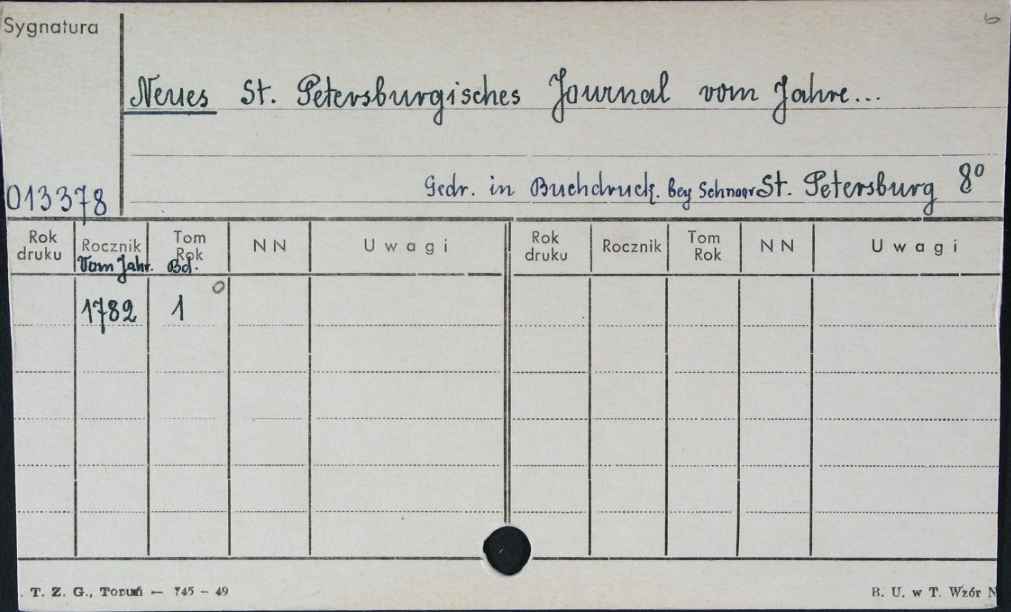 Sygnatura
6
Neues St. Petersburgisches Journal vom Jahre...
013378
Gedr. in Buchdruck. bey Schnoor St. Petersburg 8°
Rok druku Rocznik Tom Rok NN Uwagi Rok druku Rocznik Tom Rok NN Uwagi
Vom Jahr. Bd.
1782 1 o
. T. Z. G., Toruń — 745 – 49
B. U. w T. Wzór N